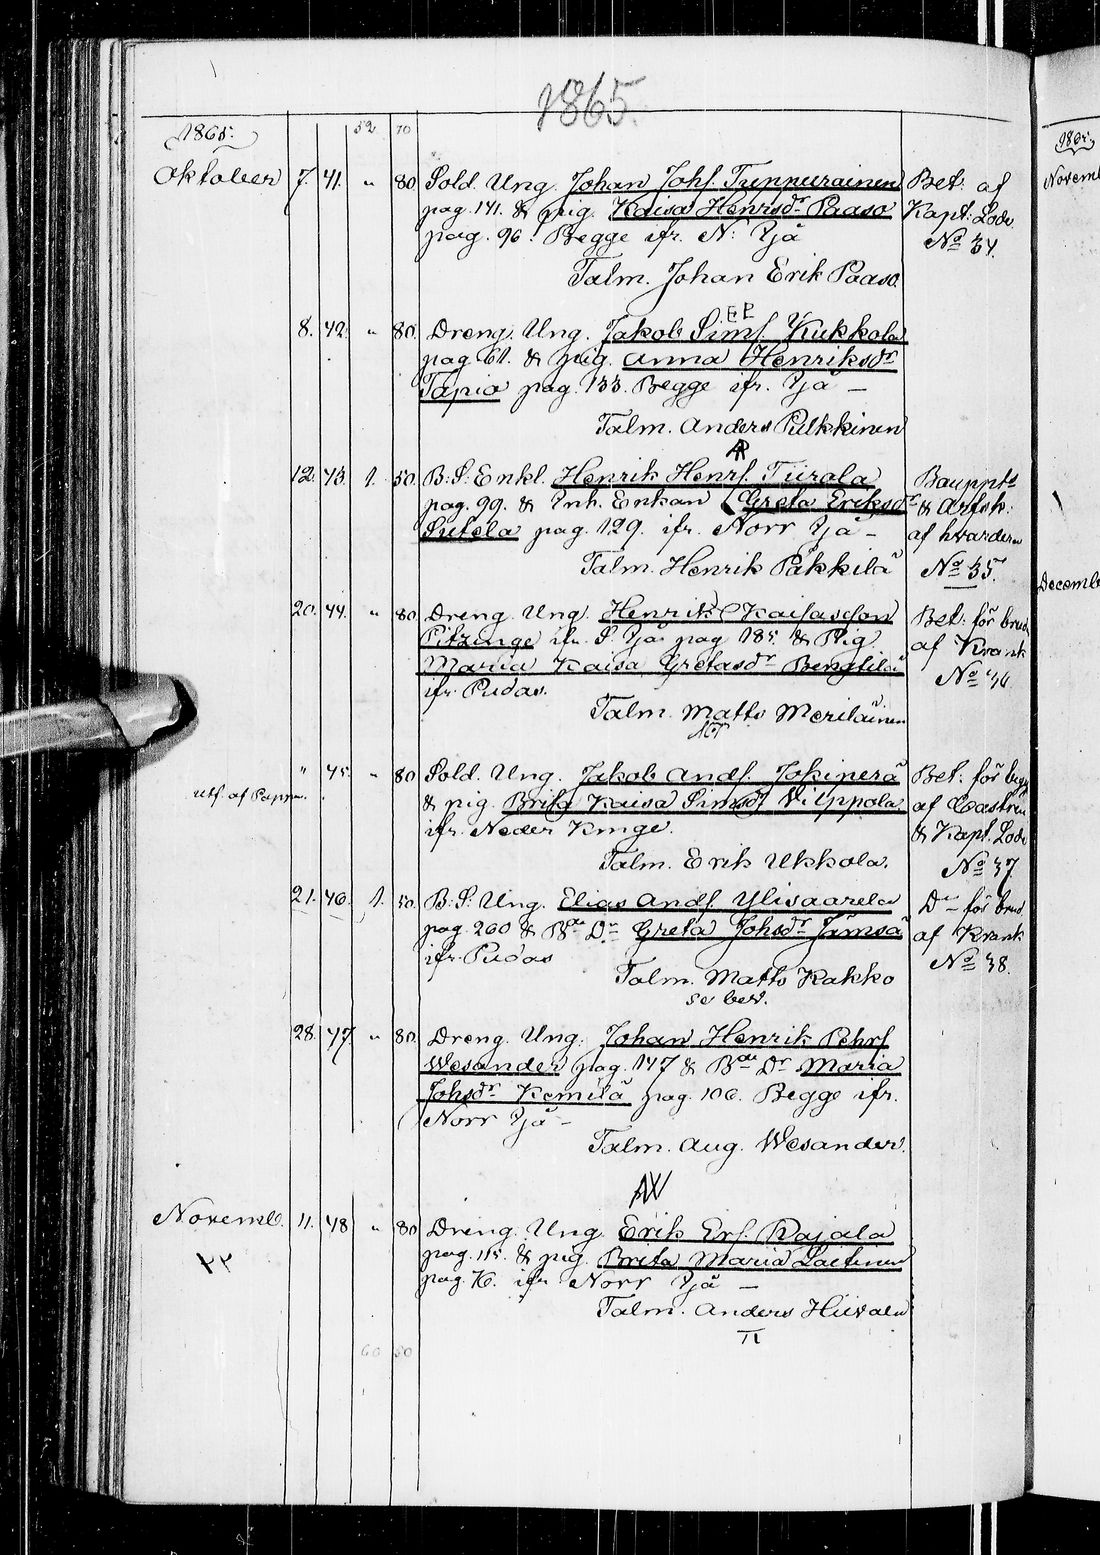 1865.
1865. 52 70
Oktober 7. 41. " 80 Sold. Ung. Johan Johs. Turppurainen Bet: af
pag. 141. & pig. Kaisa Henrsdr Paaso Kapt: Lode
pag. 96. Begge ifr. N: Ijå No 34.
Talm. Johan Erik Paaso.
EP
8. 42. " 80. Dreng. Ung. Jakob Sims. Kukkola
pag. 61. & pig. Anna Henriksdr
Tapio pag. 133. Begge ifr. Ijå –
Talm. Anders Pulkkinen
AP
12. 43. 1. 50. B. S. Enkl. Henrik Henrs. Tiirola Bouppts
pag. 99. & Inh. Enkan Greta Eriksdr & Arfsk:
Sutela pag. 129. ifr. Norr Ijå – af hvardera
Talm. Henrik Pakkila No 35.
20. 44. " 80 Dreng. Ung. Henrik Kaisasson Bet: för brud
Pitzinge ifr. S. Ijå pag 185. & Pig af Krank
Maria Kaisa Gretasdr Bengtilä No 36.
ifr. Pudas.
Talm. Matts Meriläinen
" 45. " 80 Sold. Ung. Jakob Ands. Jokiperä Bet: för begge
utf. af Pappa. & pig. Brita Kaisa Simsdr Vilppola af Castrén
ifr. Neder Kinge. & Kapt. Lode
Talm. Erik Ukkola. No 37.
21. 46. 1. 50. B. S. Ung. Elias Ands. Ylisaarela Do för brud
pag. 260 & Bde Dr Greta Johsdr Jämsä af Krank
ifr. Pudas No 38.
Talm. Matts Kakko
se bev.
28. 47 " 80. Dreng. Ung. Johan Henrik Pehrs.
Wesander pag. 147 & Bde Dr Maria
Johsdr Kemilä pag. 106. Begge ifr.
Norr Ijå –
Talm. Aug. Wesander.
AW
Novemb. 11. 48 " 80 Dreng. Ung. Erik Ers. Kajala
pag. 115. & pig. Brita Maria Laitinen
pag. 76. ifr Norr Ijå –
Talm. Anders Hiivala
60 80
1865.
Novemb
Decembe